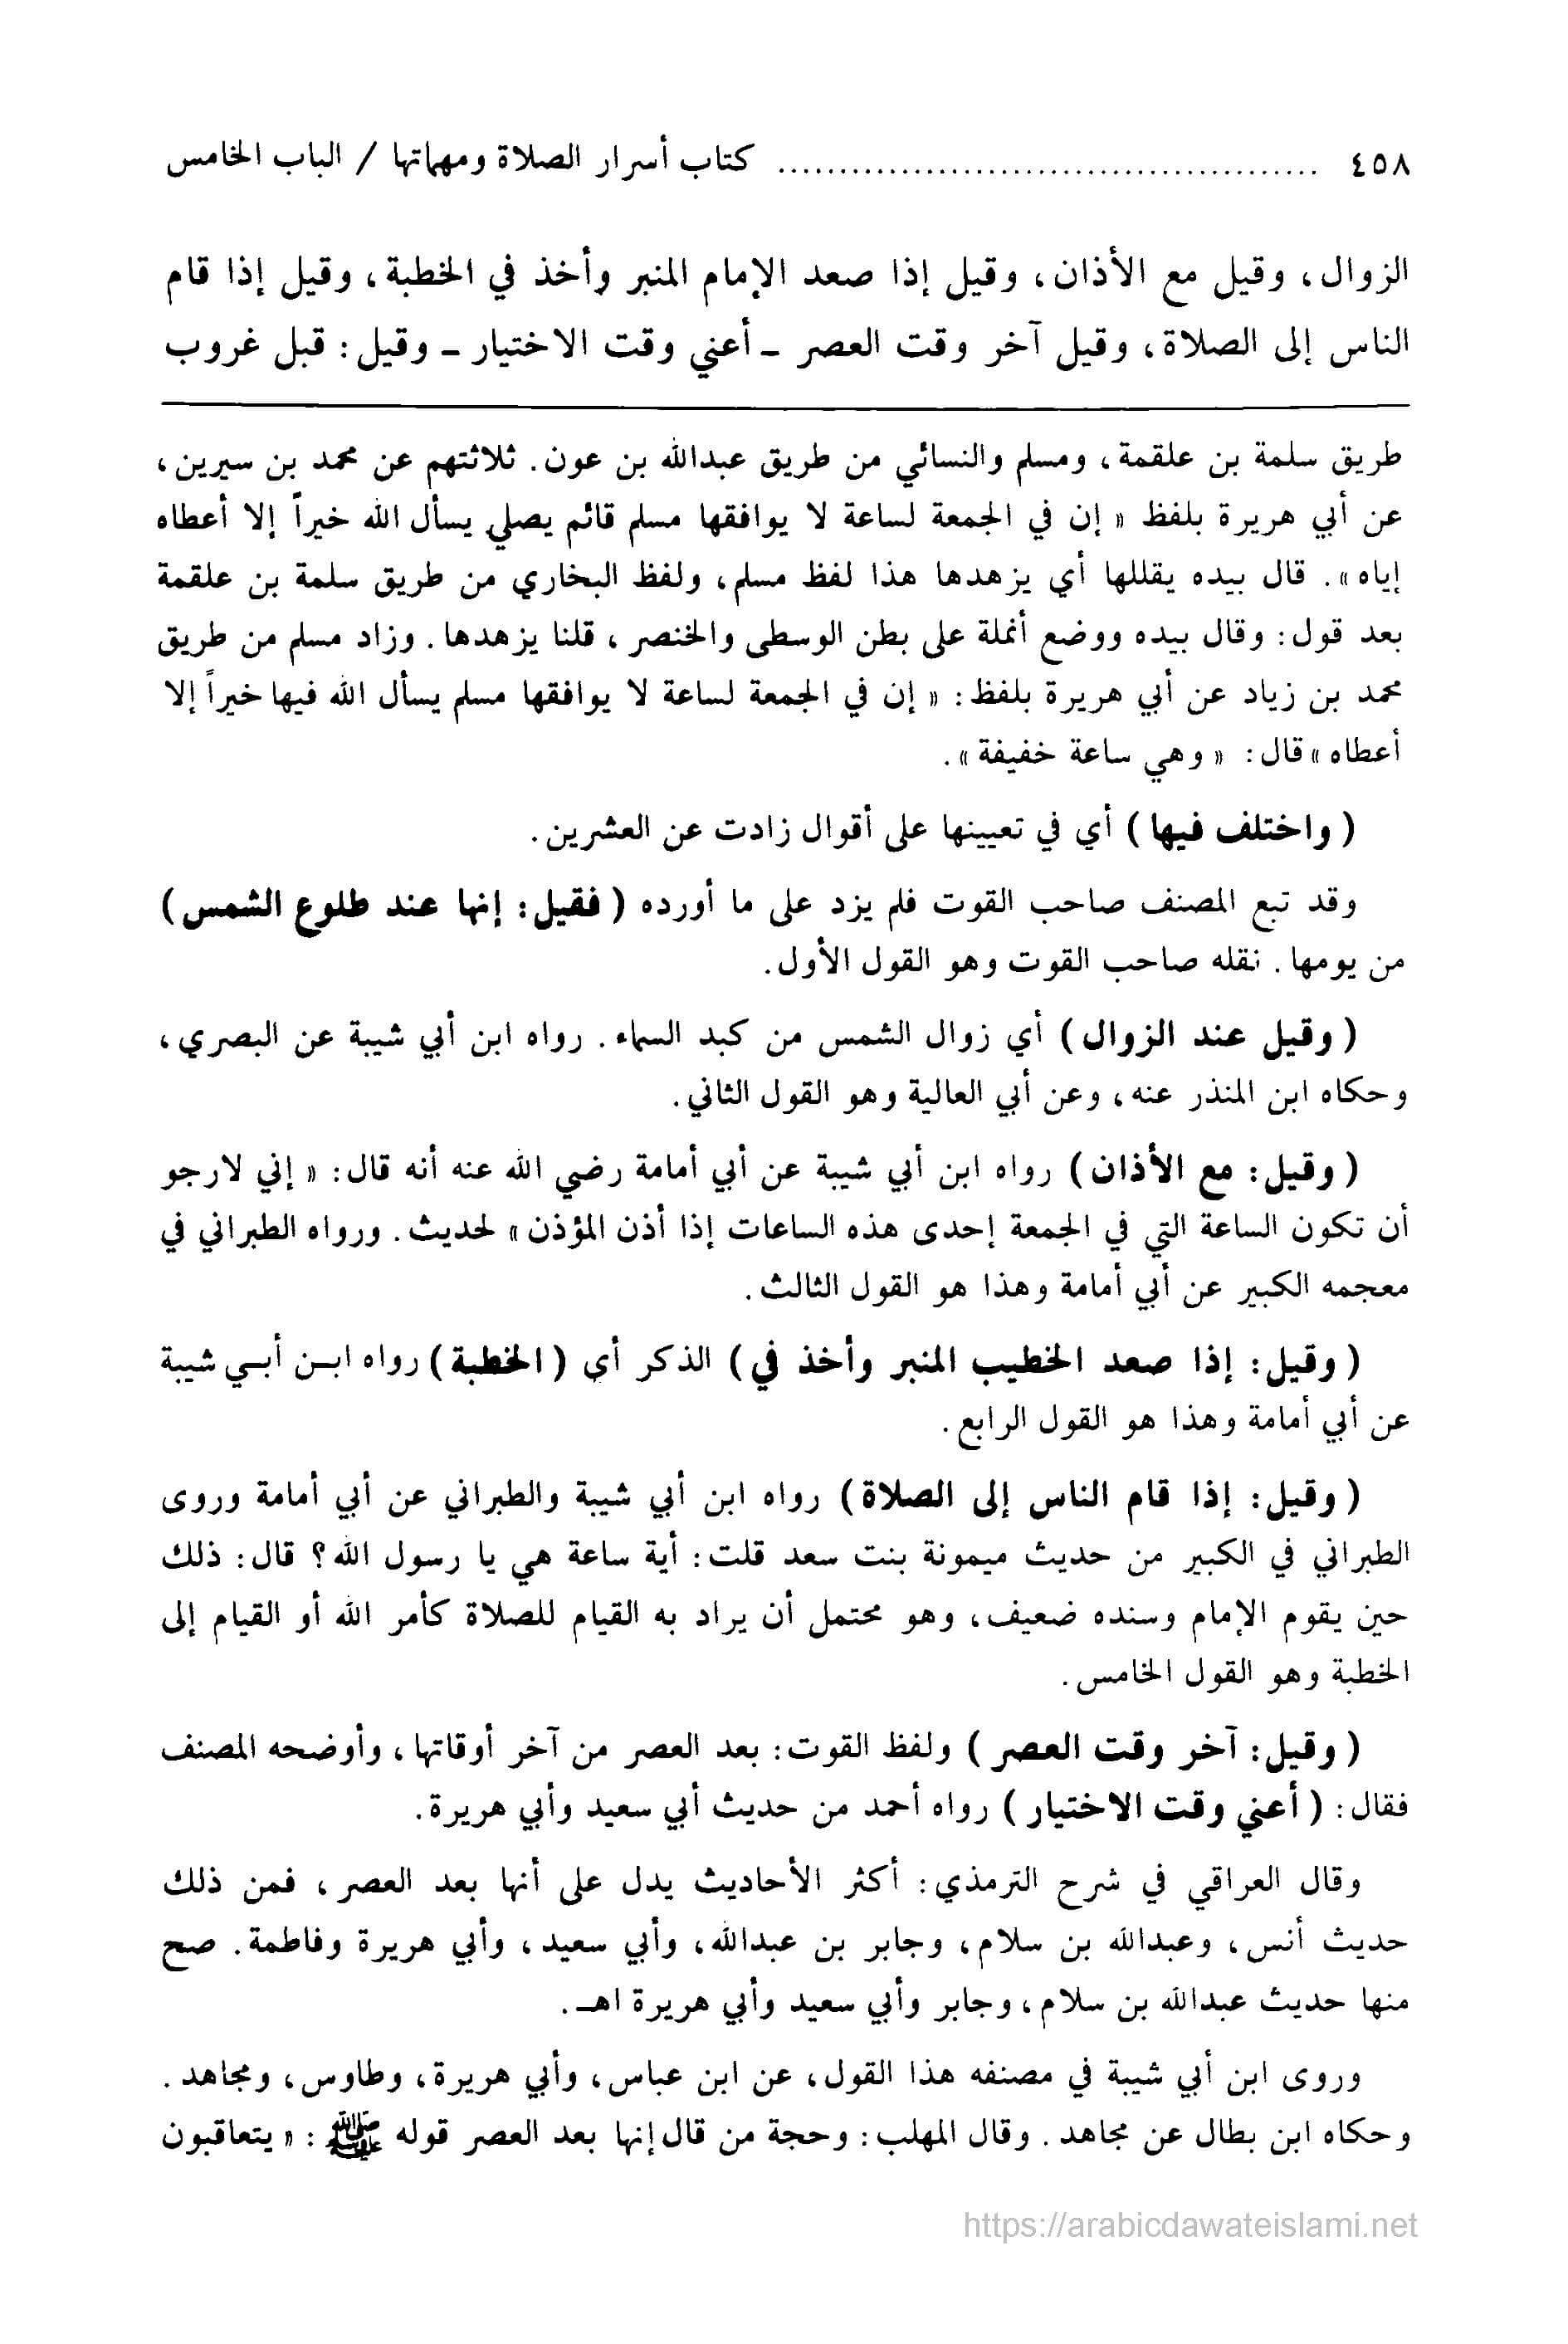 ٤٥٨ ............................................ كتاب أسرار الصلاة ومهماتها / الباب الخامس
الزوال، وقيل مع الأذان، وقيل إذا صعد الإمام المنبر وأخذ في الخطبة، وقيل إذا قام
الناس إلى الصلاة، وقيل آخر وقت العصر ـ أعني وقت الاختيار ـ وقيل: قبل غروب
طريق سلمة بن علقمة، ومسلم والنسائي من طريق عبدالله بن عون. ثلاثتهم عن محمد بن سيرين،
عن أبي هريرة بلفظ « إن في الجمعة لساعة لا يوافقها مسلم قائم يصلي يسأل الله خيراً إلا أعطاه
إياه». قال بيده يقللها أي يزهدها هذا لفظ مسلم، ولفظ البخاري من طريق سلمة بن علقمة
بعد قول: وقال بيده ووضع أنملة على بطن الوسطى والخنصر، قلنا يزهدها. وزاد مسلم من طريق
محمد بن زياد عن أبي هريرة بلفظ: « إن في الجمعة لساعة لا يوافقها مسلم يسأل الله فيها خيراً إلا
أعطاه» قال: « وهي ساعة خفيفة».
( واختلف فيها ) أي في تعيينها على أقوال زادت عن العشرين.
وقد تبع المصنف صاحب القوت فلم يزد على ما أورده ( فقيل: إنها عند طلوع الشمس )
من يومها. نقله صاحب القوت وهو القول الأول.
( وقيل عند الزوال ) أي زوال الشمس من كبد السماء. رواه ابن أبي شيبة عن البصري،
وحكاه ابن المنذر عنه، وعن أبي العالية وهو القول الثاني.
( وقيل: مع الأذان ) رواه ابن أبي شيبة عن أبي أمامة رضي الله عنه أنه قال: « إني لارجو
أن تكون الساعة التي في الجمعة إحدى هذه الساعات إذا أذن المؤذن» لحديث. ورواه الطبراني في
معجمه الكبير عن أبي أمامة وهذا هو القول الثالث.
( وقيل: إذا صعد الخطيب المنبر وأخذ في ) الذكر أي ( الخطبة ) رواه ابـن أبـي شيبة
عن أبي أمامة وهذا هو القول الرابع.
( وقيل: إذا قام الناس إلى الصلاة ) رواه ابن أبي شيبة والطبراني عن أبي أمامة وروى
الطبراني في الكبير من حديث ميمونة بنت سعد قلت: أية ساعة هي يا رسول الله؟ قال: ذلك
حين يقوم الإمام وسنده ضعيف، وهو محتمل أن يراد به القيام للصلاة كأمر الله أو القيام إلى
الخطبة وهو القول الخامس.
( وقيل: آخر وقت العصر ) ولفظ القوت: بعد العصر من آخر أوقاتها، وأوضحه المصنف
فقال: ( أعني وقت الاختيار ) رواه أحمد من حديث أبي سعيد وأبي هريرة.
وقال العراقي في شرح الترمذي: أكثر الأحاديث يدل على أنها بعد العصر، فمن ذلك
حديث أنس، وعبدالله بن سلام، وجابر بن عبدالله، وأبي سعيد، وأبي هريرة وفاطمة. صح
منها حديث عبدالله بن سلام، وجابر وأبي سعيد وأبي هريرة اهـ.
وروى ابن أبي شيبة في مصنفه هذا القول، عن ابن عباس، وأبي هريرة، وطاوس، ومجاهد.
وحكاه ابن بطال عن مجاهد. وقال المهلب: وحجة من قال إنها بعد العصر قوله ﷺ: « يتعاقبون
https://arabicdawateislami.net